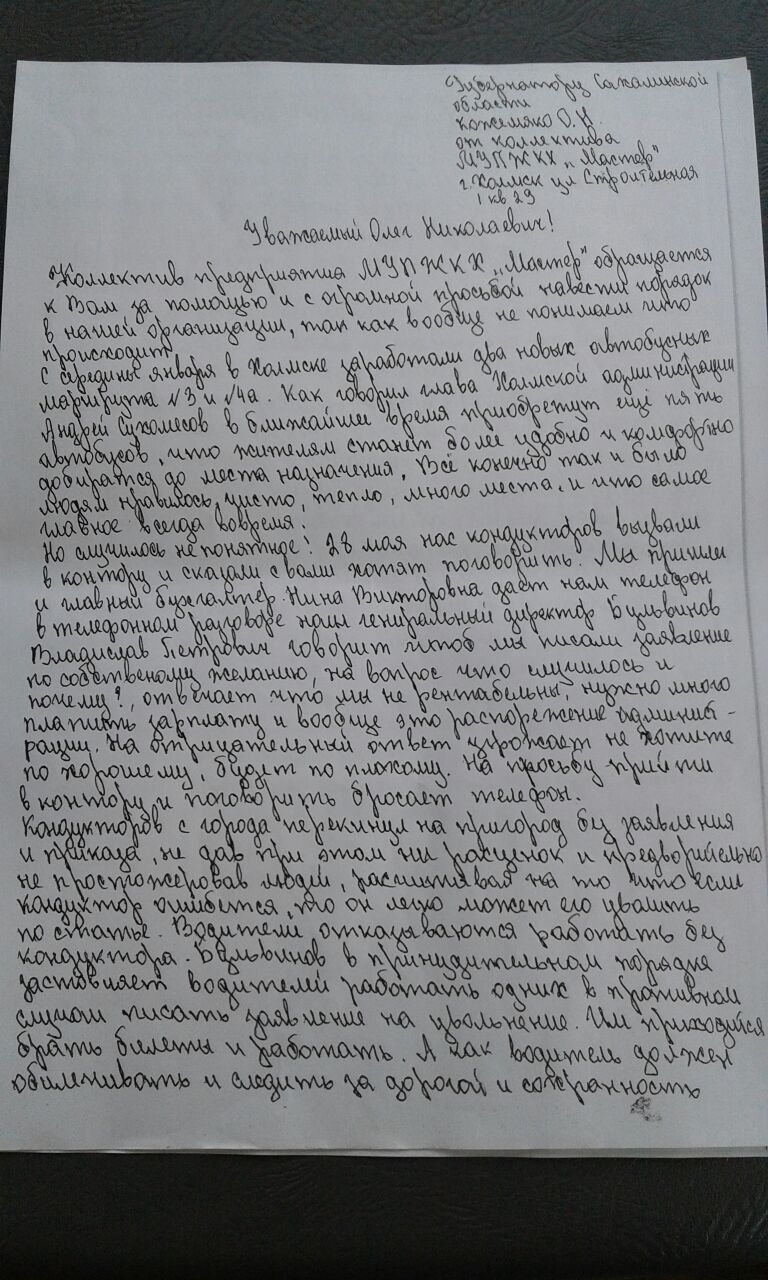 Губернатору Сахалинской
области
Кожемяко О.Н.
от коллектива
МУПЖКХ „Мастер"
г. Холмск ул Строительная
1 кв 29
Уважаемый Олег Николаевич!
Коллектив предприятия МУПЖКХ „Мастер" обращается
к Вам за помощью и с огромной просьбой навести порядок
в нашей организации, так как вообще не понимаем что
происходит.
С середины января в Холмске заработали два новых автобусных
маршрута №3 и №4а. Как говорил глава Холмской администрации
Андрей Сухомесов в ближайшие время приобретут ещё пять
автобусов, что жителям станет более удобно и комфорно
добиратся до места назначения. Всё конечно так и было
людям нравилось, чисто, тепло, много места, и что самое
главное всегда вовремя.
Но случилось не понятное! 28 мая нас кондукторов вызвали
в контору и сказали с вами хотят поговорить. Мы пришли
и главный бухгалтер Нина Викторовна даёт нам телефон
в телефонном разговоре наш генеральный директор Бульвинов
Владислав Петрович говорит чтоб мы писали заявление
по собственому желанию, на вопрос что случилось и
почему?, отвечает что мы не рентабельны, нужно много
платить зарплату и вообще это распорежение админист-
рации. На отрицательный ответ угрожает не хотите
по хорошему, будет по плохому. На просьбу прийти
в контору и поговорить бросает телефон.
Кондукторов с города перекинул на пригород без заявления
и приказа, не дав при этом ни расценок и предворительно
не простожеровав людей, расчитывая на то что если
кондуктор ошибется, то он легко может его уволить
по статье. Водители отказываются работать без
кондуктора. Бульвинов в принудительном порядке
заставляет водителей работать одних в противном
случаи писать заявление на увольнение. Им приходится
брать билеты и работать. А как водитель должен
обилечивать и следить за дорогой и сохранность